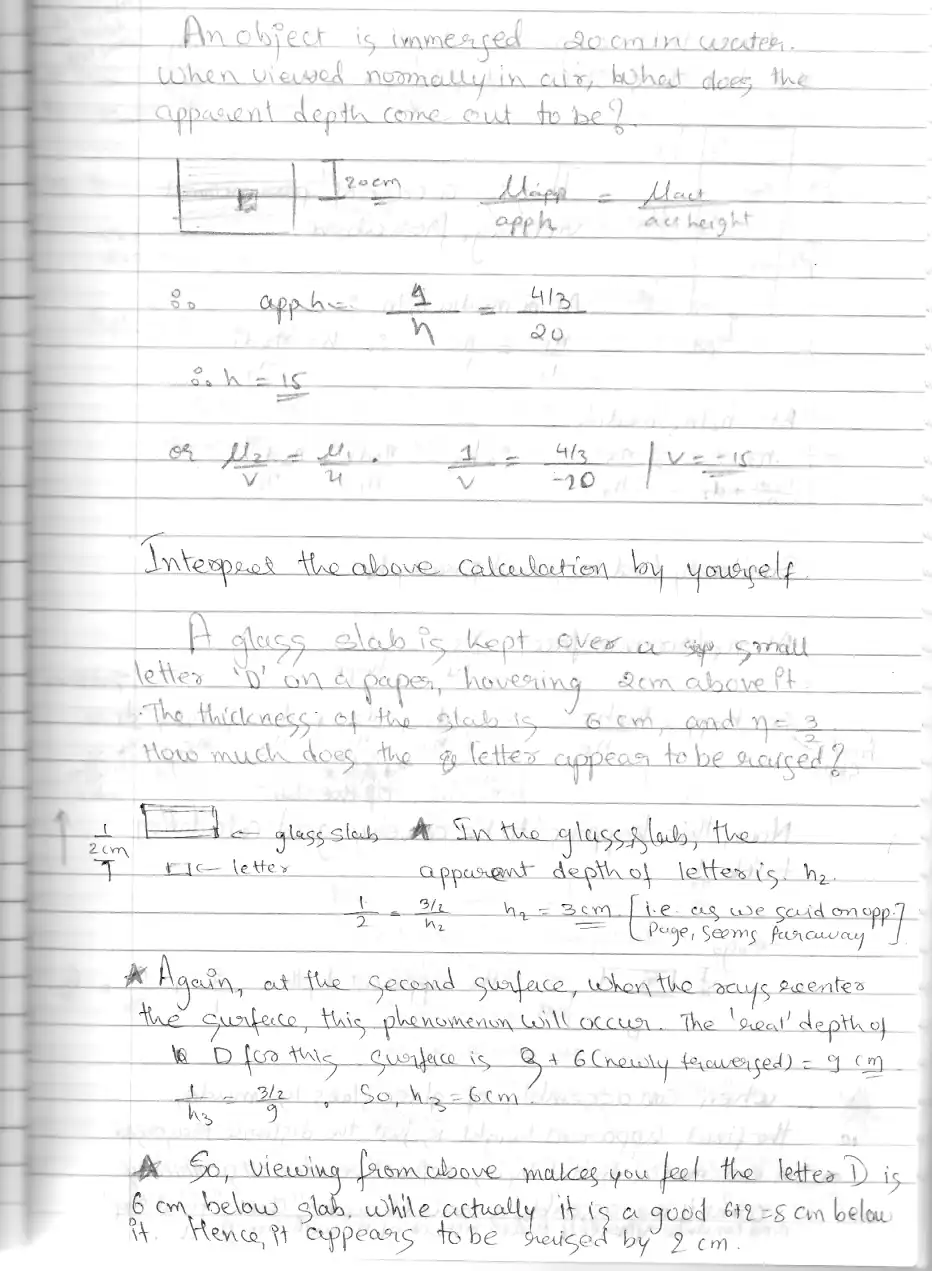 An object is immersed 20 cm in water.
When viewed normally in air, what does the
apparent depth come out to be?
20cm
μapp / app h = μact / act height
∴ app h = 1/h = 4/3 / 20
∴ h = 15
or μ2/v = μ1/u . 1/v = 4/3 / -20 | v = -15
Interpret the above calculation by yourself.
A glass slab is kept over a small
letter 'D' on a paper, hovering 2cm above it.
The thickness of the slab is 6 cm, and η = 3/2
How much does the letter appear to be raised?
2cm
← glass slab
← letter
★ In the glass slab, the
apparent depth of letter is h2.
1/2 = 3/2 / h2 h2 = 3cm [i.e. as we said on opp. page, seems faraway]
★ Again, at the second surface, when the rays reenter
the surface, this phenomenon will occur. The 'real' depth of
D for this surface is 3 + 6 (newly traversed) = 9 cm
1/h3 = 3/2 / 9 . So, h3 = 6cm.
★ So, viewing from above makes you feel the letter D is
6 cm below slab, while actually it is a good 6+2=8 cm below
it. Hence, it appears to be raised by 2 cm.